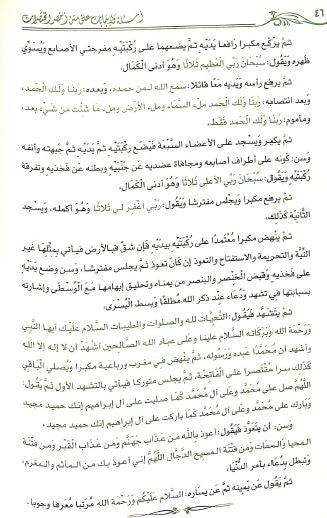 ٤٦
أسئلة وإجابات على متن أخصر المختصرات
ثمَّ يركَع مكبرا رافعا يَدَيْهِ ثمَّ يضعهما على رُكْبَتَيْهِ مفرجتي الأصابع وَيُسَوِّي
ظَهره وَيَقُول: سُبْحَانَ رَبِّيَ الْعَظِيمِ ثَلَاثًا وَهُوَ أدنى الْكَمَال.
ثمَّ يرفع رَأسه وَيَديه مَعًا قائلا: سمع الله لمن حمده، وبعده: رَبنَا وَلَك الْحَمد،
وَبعد انتصابه: رَبنَا وَلَك الْحَمد ملْء السَّمَاء وملء الأَرْض وملء مَا شِئْت من شَيْء بعد،
ومأموم: رَبنَا وَلَك الْحَمد فَقَط.
ثمَّ يكبر وَيسْجد على الأعضاء السَّبْعَة فَيَضَع رُكْبَتَيْهِ ثمَّ يَدَيْهِ ثمَّ جَبهته وأنفه
وَسن: كَونه على أطراف أصابعه ومجافاة عضديه عَن جَنْبَيْهِ وبطنه عَن فَخذيهِ وتفرقة
رُكْبَتَيْهِ وَيَقُول: سُبْحَانَ رَبِّيَ الأعلى ثَلَاثًا وَهُوَ أدنى الْكَمَال.
ثمَّ يرفع مكبرا وَيجْلس مفترشا وَيَقُول: رَبِّي اغْفِر لي ثَلَاثًا وَهُوَ أكمله، وَيسْجد
الثَّانِيَة كَذَلِك.
ثمَّ ينْهض مكبرا مُعْتَمدًا على رُكْبَتَيْهِ بيدَيْهِ فَإِن شقّ فبالأرض فَيَأْتِي بِمِثْلِهَا غير
النِّيَّة والتحريمة والاستفتاح والتعوذ إِن كَانَ تعوذ ثمَّ يجلس مفترشا، وَسن وضع يَدَيْهِ
على فَخذيهِ وَقبض الْخِنْصر والبنصر من يمناه وتحليق إبهامها مَعَ الْوُسْطَى وإشارته
بسبابتها فِي تشهد وَدُعَاء عِنْد ذكر الله مُطلقًا وَبسط الْيُسْرَى.
ثمَّ يتَشَهَّد فَيَقُول: التَّحِيَّات لله والصلوات والطيبات السَّلَام عَلَيْك أَيهَا النَّبِي
وَرَحْمَة الله وَبَرَكَاته السَّلَام علينا وعَلى عباد الله الصَّالِحين أشْهد أَن لَا إِلَه إِلَّا الله
وَأشْهد أَن مُحَمَّدًا عَبده وَرَسُوله. ثمَّ ينْهض فِي مغرب ورباعية مكبرا وَيُصلي الْبَاقِي
كَذَلِك سرا مُقْتَصرا على الْفَاتِحَة. ثمَّ يجلس متوركا فَيَأْتِي بالتشهد الأول ثمَّ يَقُول:
اللَّهُمَّ صل على مُحَمَّد وعَلى آل مُحَمَّد كَمَا صليت على آل إِبْرَاهِيم إِنَّك حميد مجيد
وَبَارك على مُحَمَّد وعَلى آل مُحَمَّد كَمَا باركت على آل إِبْرَاهِيم إِنَّك حميد مجيد.
وَسن: أَن يتَعَوَّذ فَيَقُول: أعوذ بِاللَّه من عَذَاب جَهَنَّم وَمن عَذَاب الْقَبْر وَمن فتْنَة
الْمحيا وَالْمَمَات وَمن فتْنَة الْمَسِيح الدَّجَّال اللَّهُمَّ إِنِّي أعوذ بك من المأثم والمغرم.
وَتبطل بِدُعَاء بِأَمْر الدُّنْيَا.
ثمَّ يَقُول عَن يَمِينه ثمَّ عَن يسَاره: السَّلَام عَلَيْكُم وَرَحْمَة الله مُرَتبا مُعَرفا وجوبا.